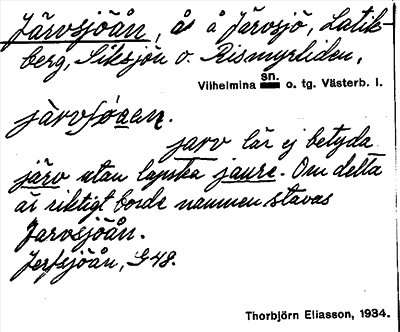 Järvsjöån, å å Järvsjö, Latik-
berg, Siksjön o. Rismyrliden,
Vilhelmina sn. o. tg. Västerb. l.
järvsjöaen.
jarv lär ej betyda
järv utan lapska jaure. Om detta
är riktigt borde namnen stavas
Jarvsjöån.
Jerfsjöån, G48.
Thorbjörn Eliasson, 1934.